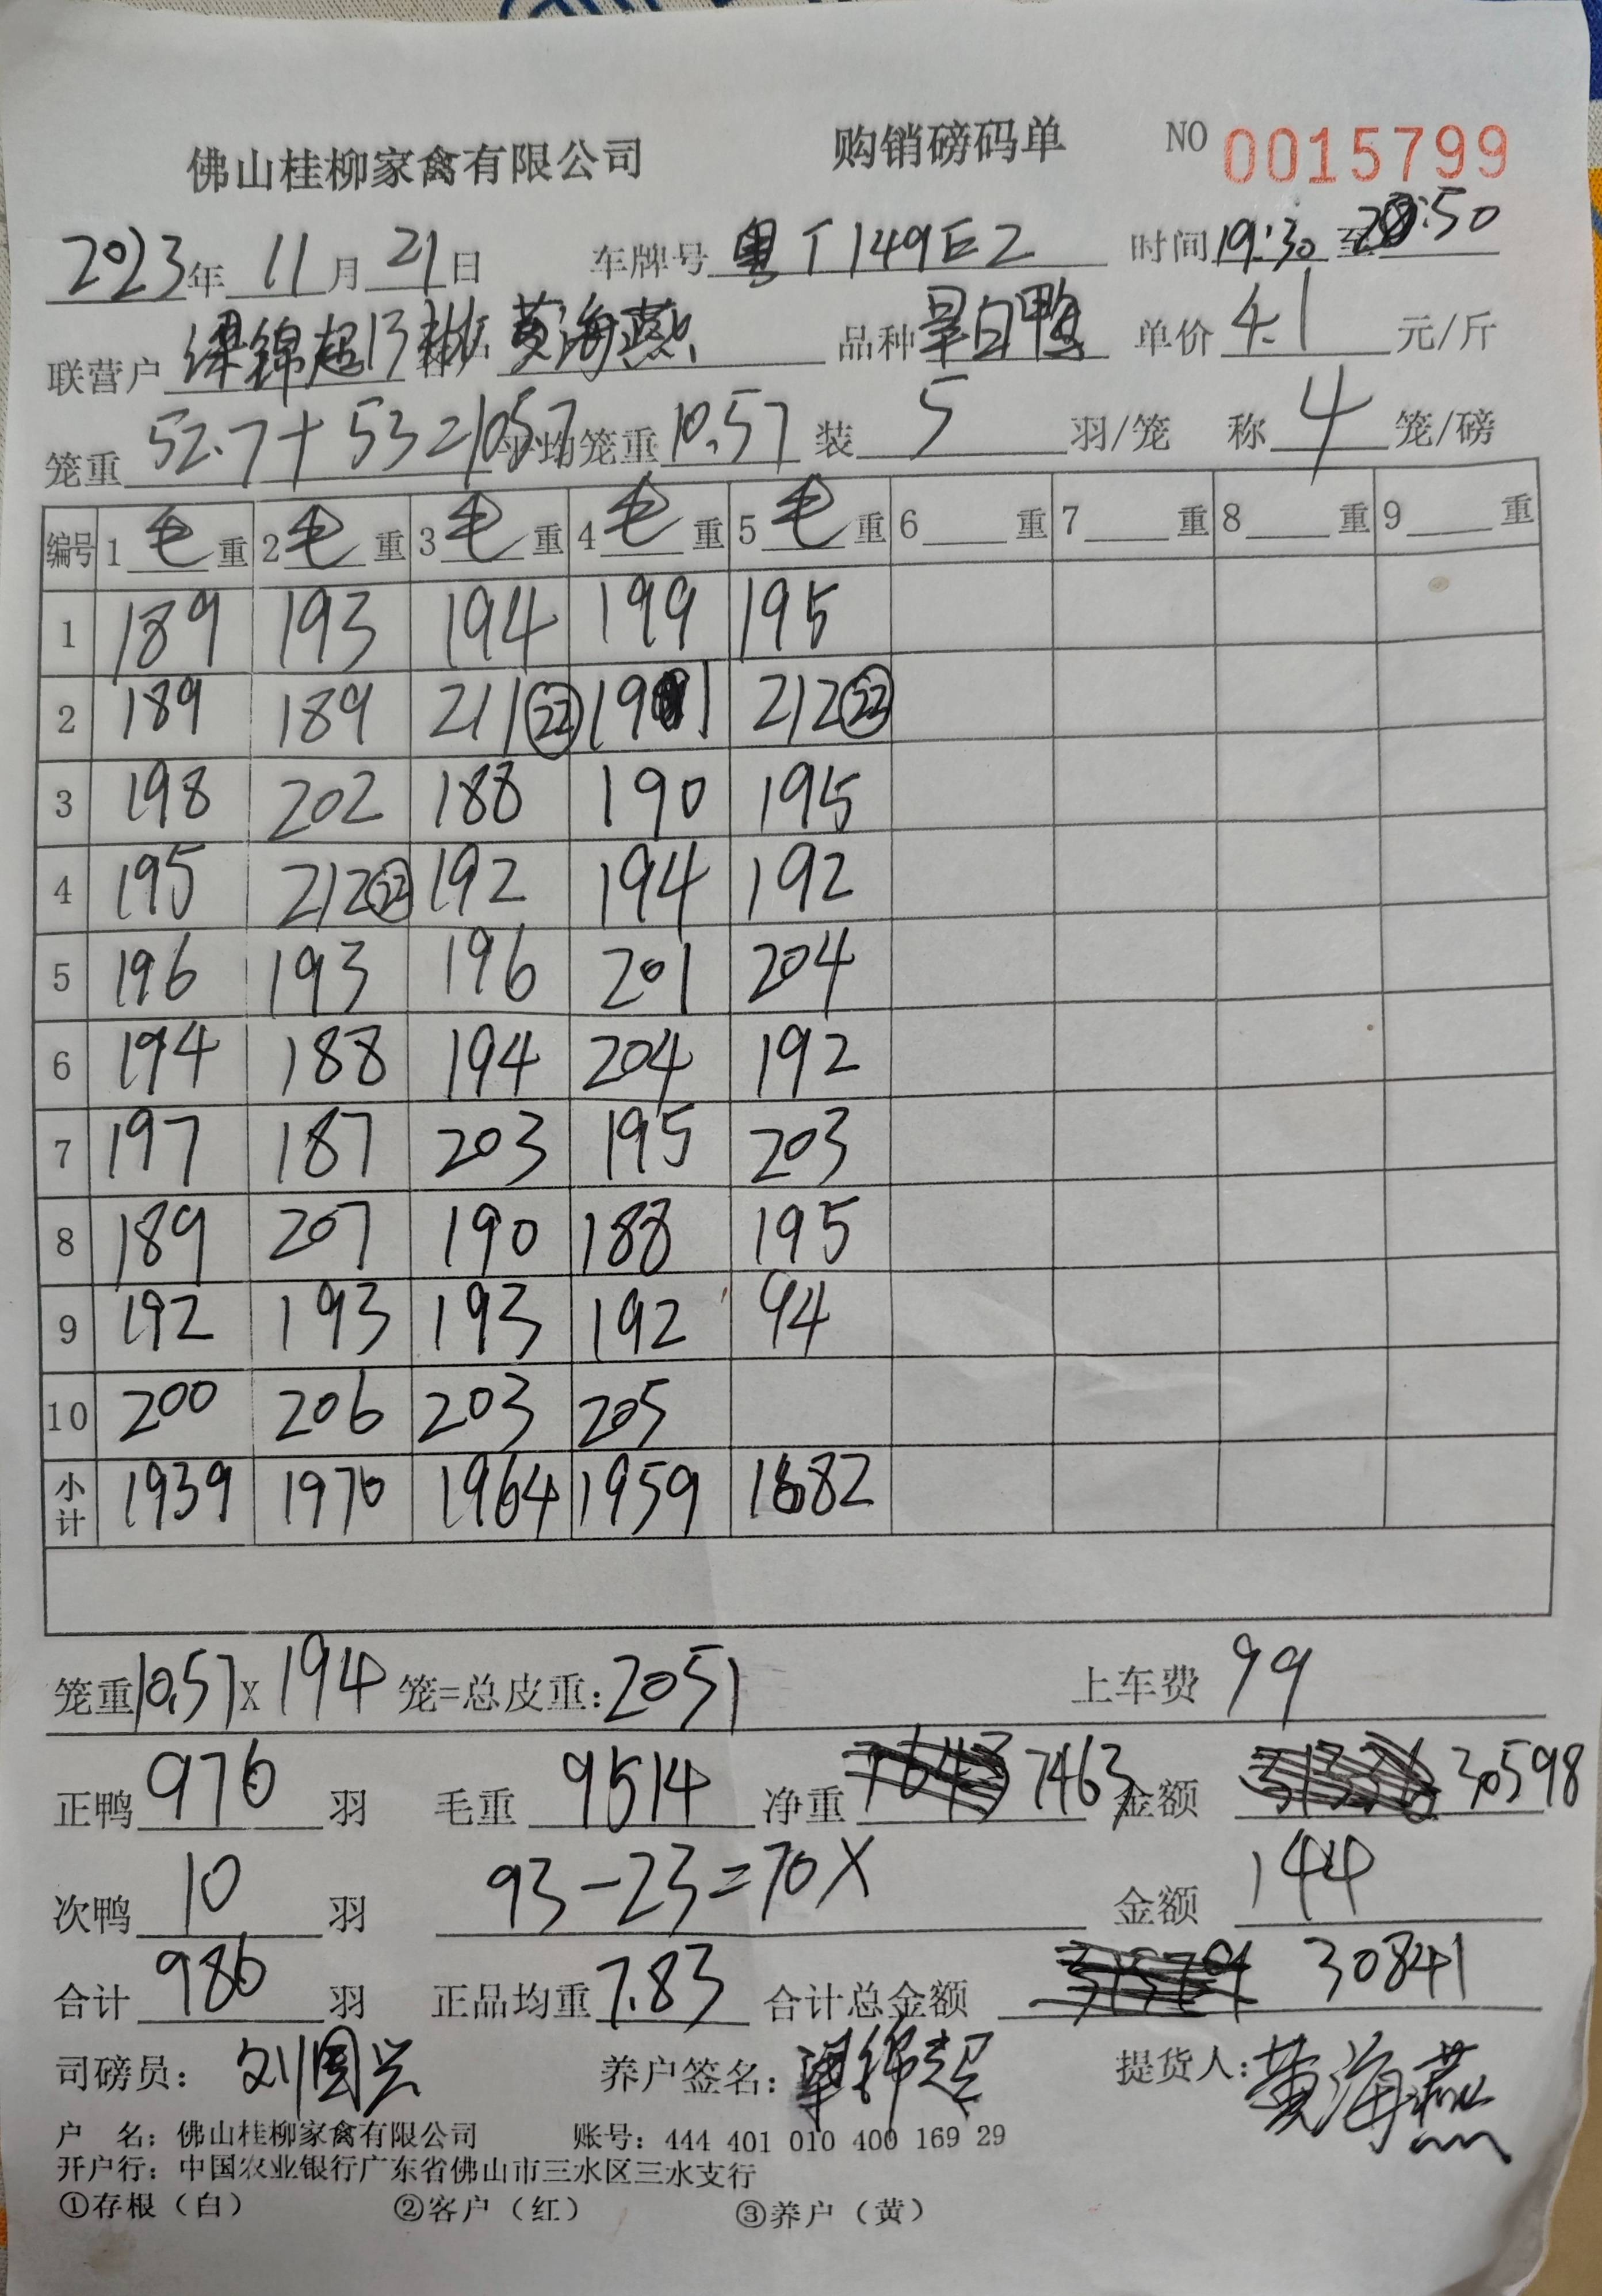 佛山桂柳家禽有限公司 购销磅码单 NO 0015799
2023年 11月 21日 车牌号 粤T149E2 时间 19:30 至 20:50
联营户 梁锦超13批 黄海燕 品种 白鸭 单价 4.1 元/斤
笼重 52.7+53=105.7 平均笼重 10.57 装 5 羽/笼 称 4 笼/磅
编号 1 毛 重 2 毛 重 3 毛 重 4 毛 重 5 毛 重 6 重 7 重 8 重 9 重
1 189 193 194 199 195
2 189 189 211 ㉒ 191 212 ㉒
3 198 202 188 190 195
4 195 212 ㉒ 192 194 192
5 196 193 196 201 204
6 194 188 194 204 192
7 197 187 203 195 203
8 189 207 190 188 195
9 192 193 193 192 94
10 200 206 203 205
小计 1939 1970 1964 1959 1682
笼重 10.57 X 194 笼=总皮重: 2051 上车费 99
正鸭 976 羽 毛重 9514 净重 7463 金额 30598
次鸭 10 羽 93-23=70X 金额 144
合计 986 羽 正品均重 7.83 合计总金额 30841
司磅员: 刘国兴 养户签名: 梁锦超 提货人: 黄海燕
户 名: 佛山桂柳家禽有限公司 账号: 444 401 010 400 169 29
开户行: 中国农业银行广东省佛山市三水区三水支行
①存根（白） ②客户（红） ③养户（黄）